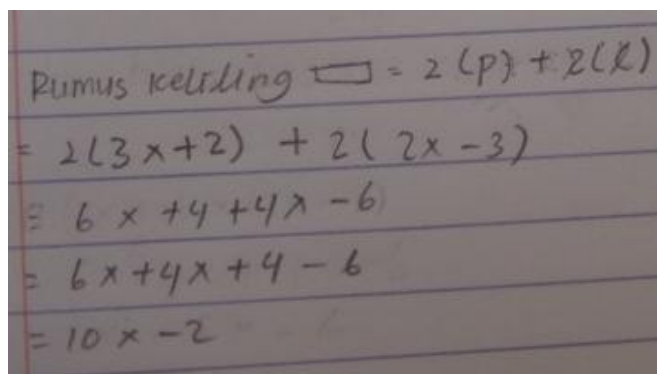 Rumus keliling ▭ = 2 (p) + 2(l)
= 2(3x+2) + 2( 2x - 3)
= 6x + 4 + 4x - 6
= 6x + 4x + 4 - 6
= 10x - 2